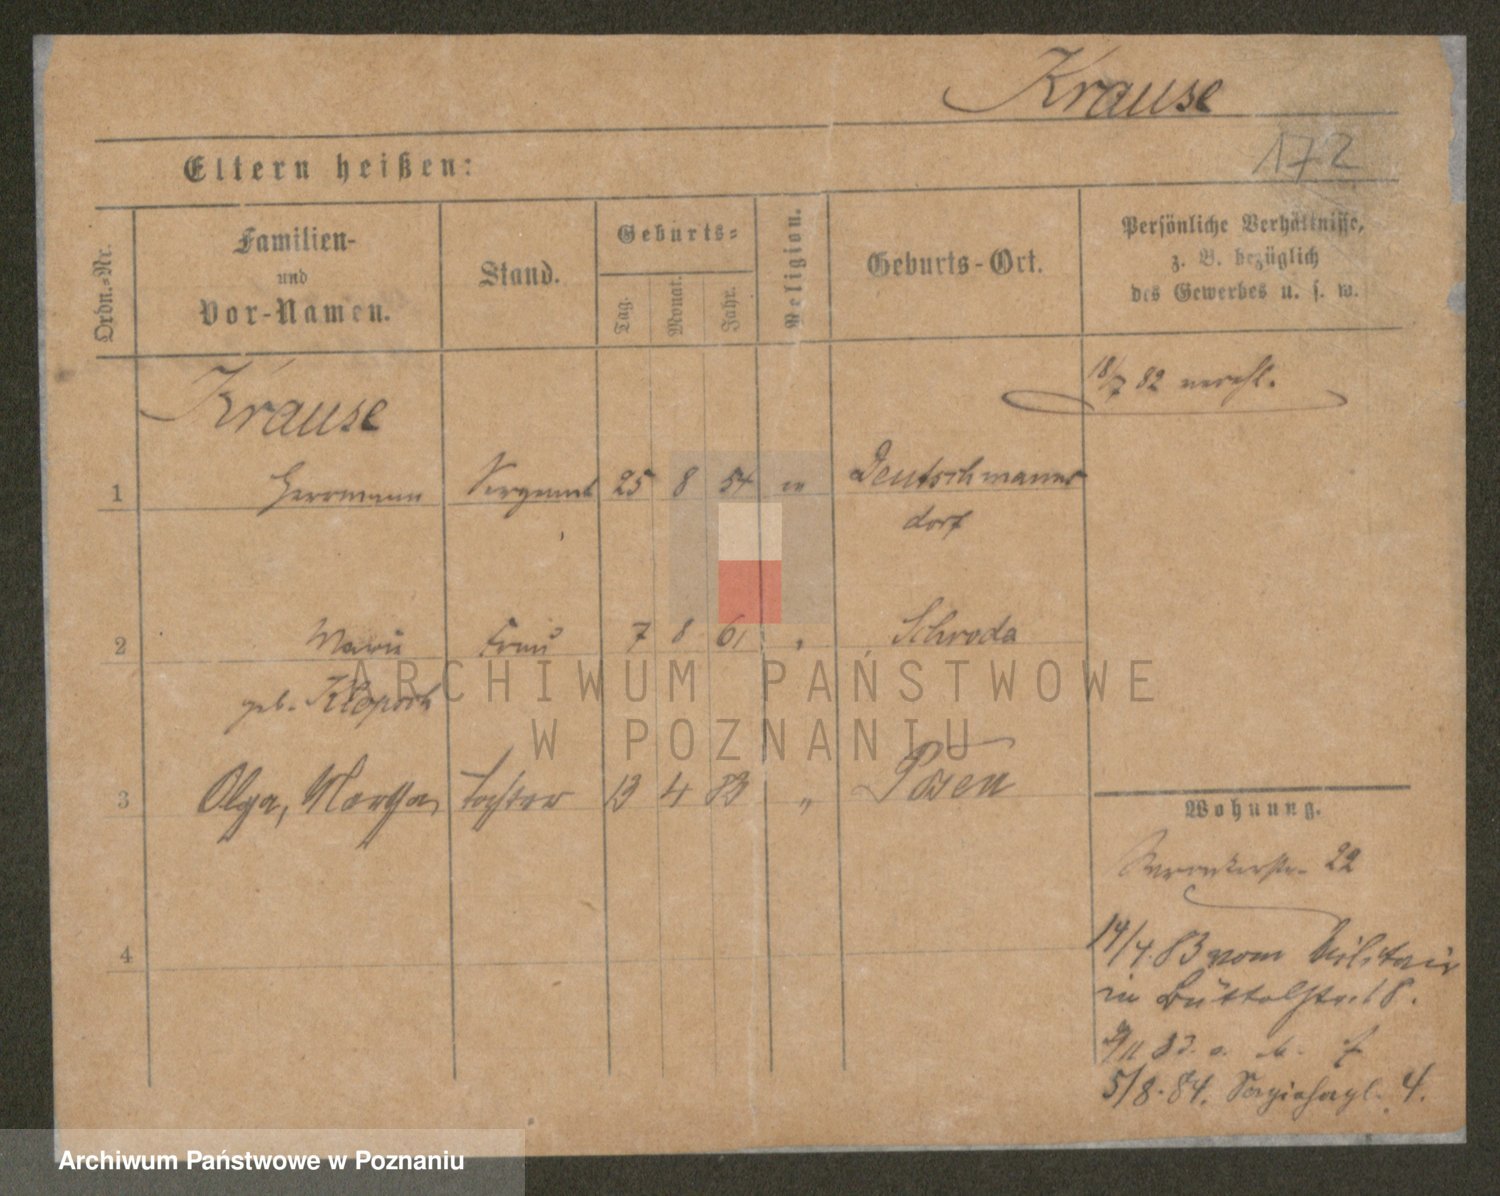 Krause
172
Eltern heißen:
Ordn.-Nr.
Familien-
und
Vor-Namen.
Stand.
Geburts-
Tag.
Monat.
Jahr.
Religion.
Geburts-Ort.
Persönliche Verhältnisse,
z. B. bezüglich
des Gewerbes u. s. w.
18/7 82 verehl.
Krause
1 Herrmann Sergeant 25 8 54 Deutschmanns
dorf
2 Marie Frau 7 8 61 " Schroda
geb.
3 Olga, Martha, Tochter 13 4 83 " Posen
4
Wohnung.
22
14/4. 83 vom Militair
in Büttelstr. 18.
5/8. 84. 4.
ARCHIWUM PAŃSTWOWE
W POZNANIU
Archiwum Państwowe w Poznaniu